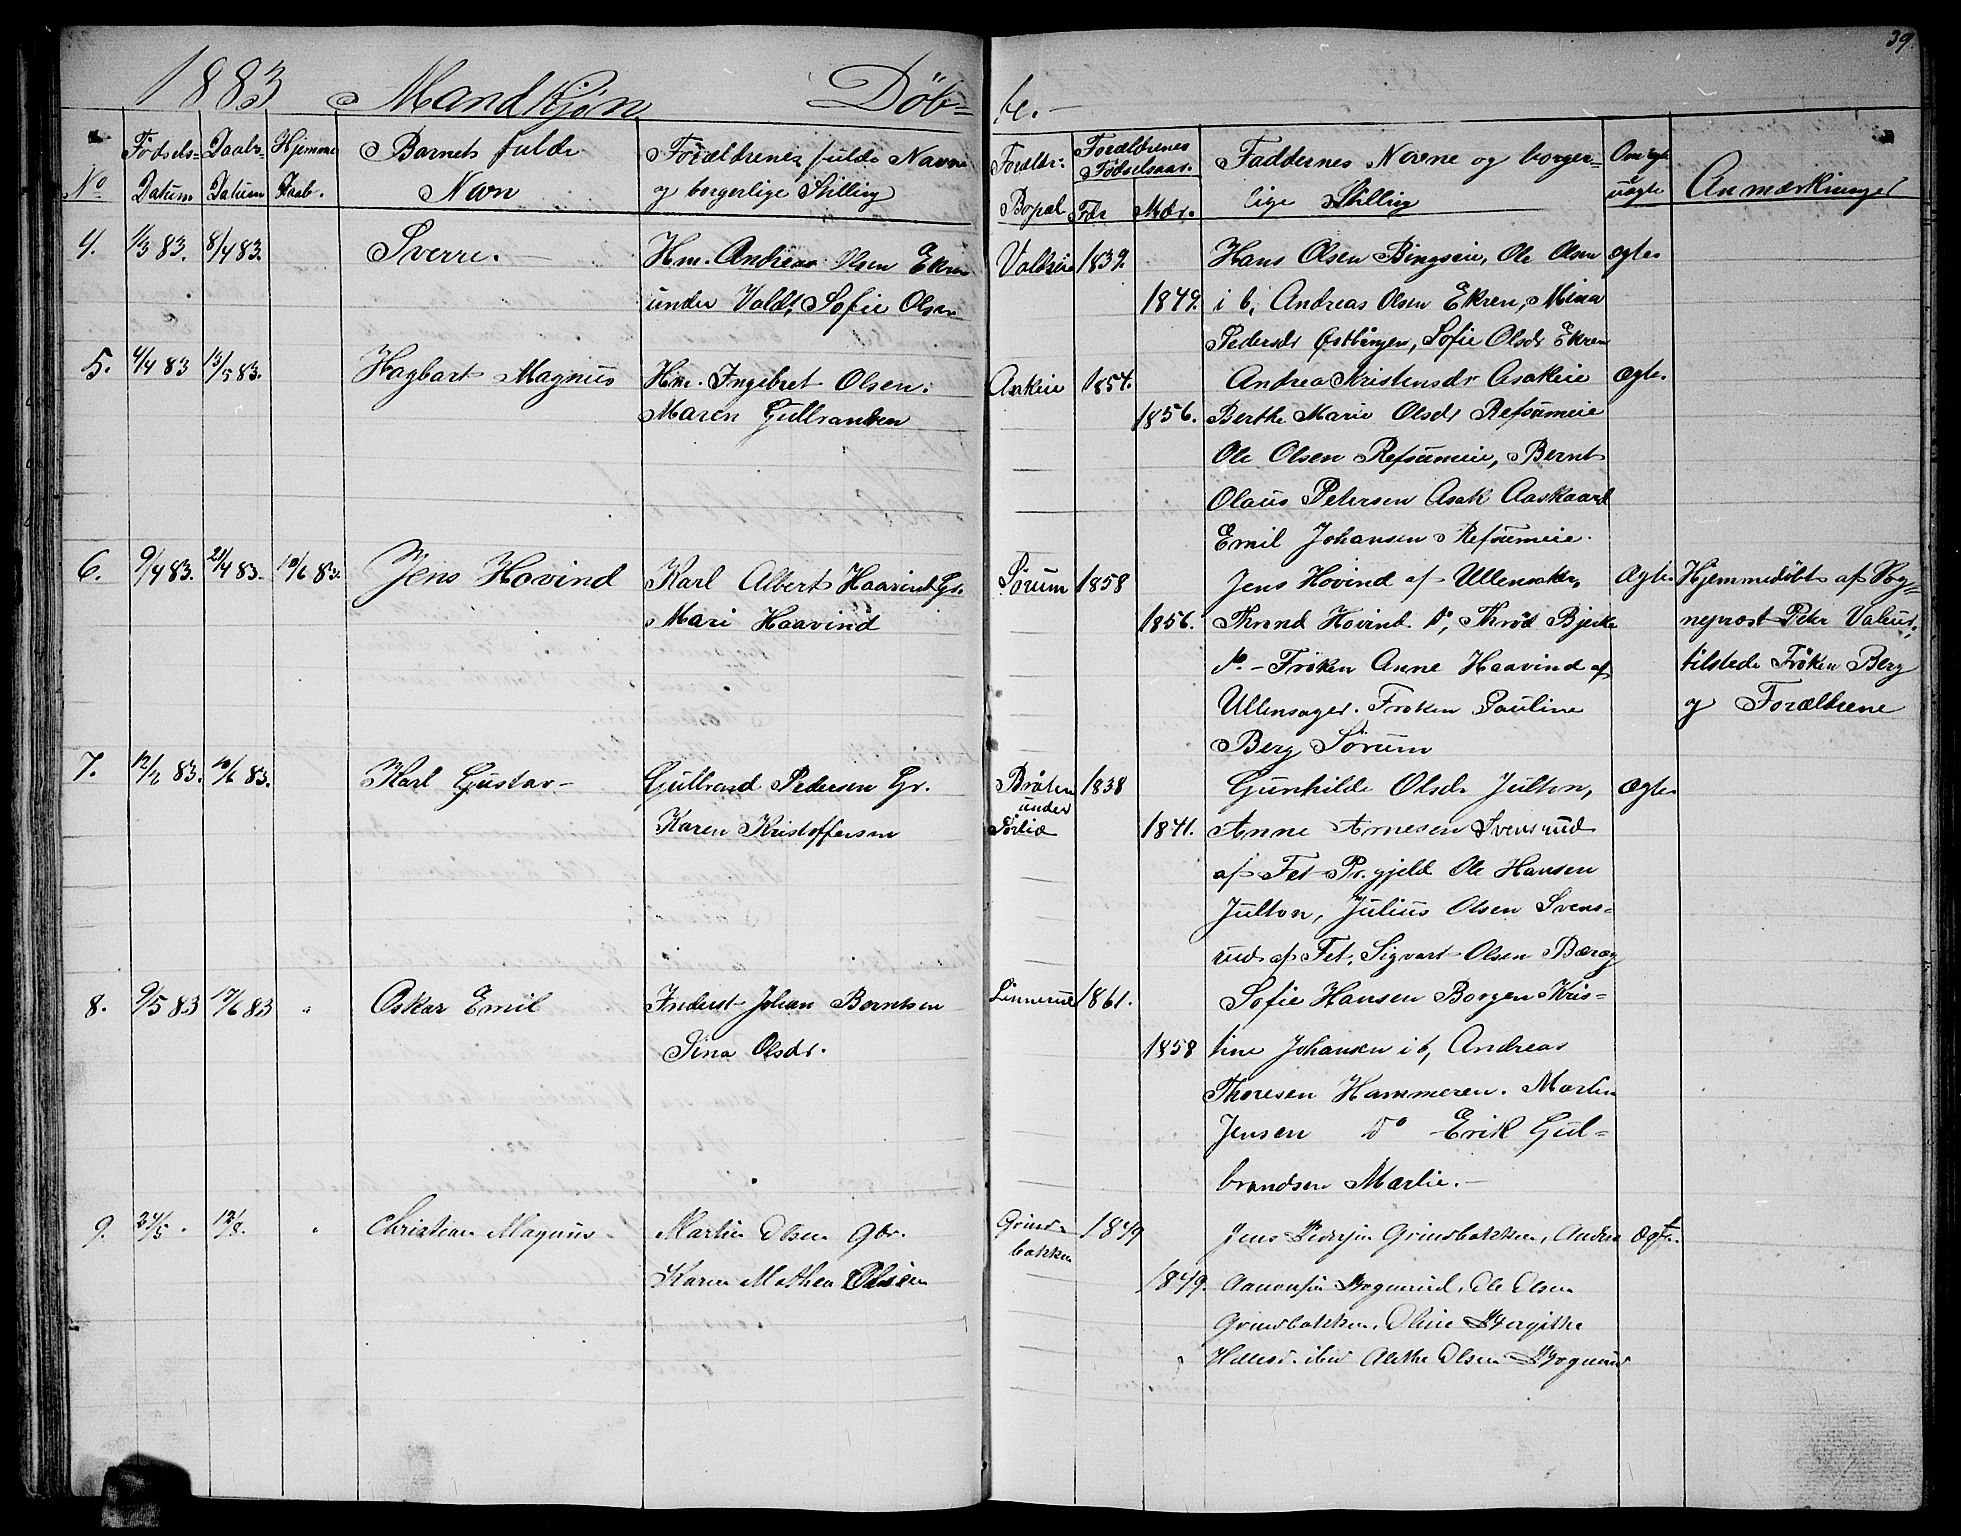 39.
1883 Mandkjøn Døb-
te.-
No
Fødsels-
Datum
Daabs-
Datum
Hjemme
Daab.
Barnets fulde
Navn
Forældrenes fulde Navne
og borgerlige Stilling
Forældr:
Bopæl
Forældrenes
Fødselsaar.
Fdr
Mdr.
Faddernes Navne og borger-
lige Stilling
Om ægte
uægte
Anmærkninger
4. 11/3 83. 8/4 83. Sverre. Hm. Andreas Olsen Ekren
under Vald, Sofie Olsen
Valdseie 1839.
1849.
Hans Olsen Bingseie, Ole Olsen
i b, Andreas Olsen Ekren, Mina
Pedersdr Østbingen, Sofie Olsdr Ekren
ægte.
5. 4/4 83 13/5 83. Hagbart Magnus Hm. Ingebret Olsen.
Maren Gulbrandsen
Asakeie 1854.
1856.
Andrea Kristensdr Asakeie
Berthe Marie Olsdr Refsumeie
Ole Olsen Refsumeie, Bernt
Olaus Petersen Asak Aaskaard
Emil Johansen Refsumeie.
ægte.
6. 9/4 83. 21/4 83. 10/6 83. Jens Hovind Karl Albert Haavind Gr.
Mari Haavind
Sørum 1858
1856.
Jens Hovind af Ullensaker,
Thrond Hovind do, Thrød Bjerke
do - Frøken Anne Haavind af
Ullensager. Frøken Pauline
Berg Sørum
Ægte.
Hjemmedøbt af Sog-
neprest Peter Valeur,
tilstede Frøken Berg
og Forældrene
7. 12/2 83. 10/6 83. Karl Gustav- Gulbrand Pedersen Gr.
Karen Kristoffersen
Bråten
under
Sørlie
1838
1841.
Gunhilde Olsdr Julton,
Anne Arnesen Svensrud
af Fet Pr.gjeld Ole Hansen
Julton, Julius Olsen Svens-
rud af Fet, Sigvart Olsen Bærøg
Ægte
8. 9/5 83 17/6 83 " Oskar Emil Frederst Johan Berntsen
Sina Olsdr.
Linnerud 1861.
1858
Sofie Hansen Borgen Kris-
tine Johansen i b, Andreas
Thoresen Hammeren. Martin
Jensen do Erik Gul-
brandsen Mærlie.-
9. 24/5 . 12/8. " Christian Magnus Martin Olsen Gbr.
Karen Mathea Olsen
Grinds-
bakken
1849
1849.
Jens Pedersen Grindbakken, Andrea
Ole Olsen
Grindbakken, Oline Bergithe
ibid Alethe Olsen
Ægte.